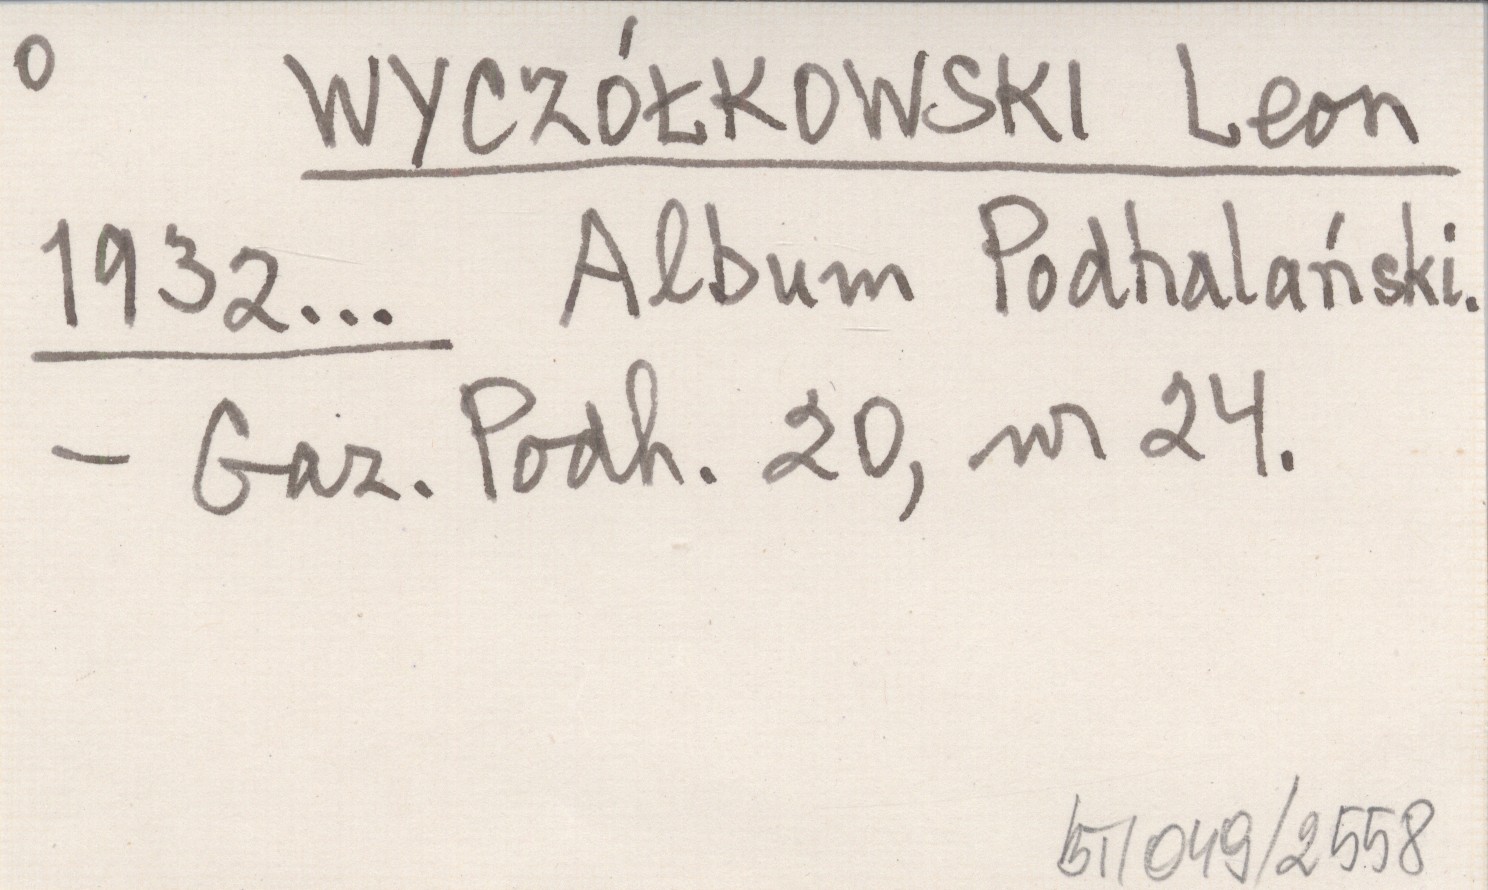 o WYCZÓŁKOWSKI Leon
1932... Album Podhalański.
- Gaz. Podh. 20, nr 24.
/049/2558